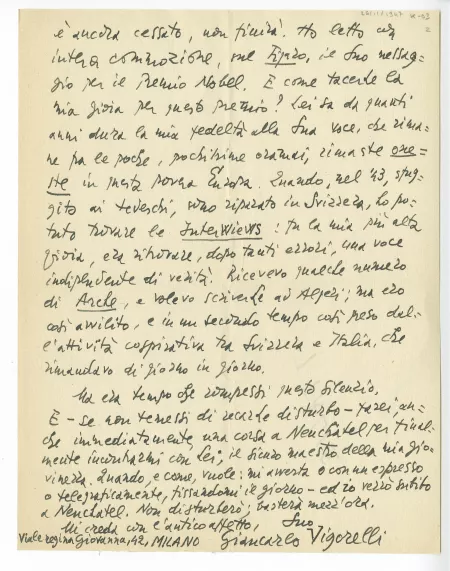 è ancora cessato, non finirà. Ho letto con
intera commozione, sul Figaro, il Suo messag-
gio per il Premio Nobel. E come tacerLe la
mia gioia per questo premio? Lei sa da quanti
anni dura la mia fedeltà alla Sua voce, che rima-
ne fra le poche, pochissime oramai, rimaste one-
ste in questa povera Europa. Quando, nel '43, sfug-
gito ai tedeschi, sono riparato in Svizzera, ho po-
tuto trovare le InterWiews: fu la mia più alta
gioia, era ritrovare, dopo tanti errori, una voce
indipendente di verità. Ricevevo qualche numero
di Arche, e volevo scriverLe ad Algeri; ma ero
così avvilito, e in un secondo tempo così preso dal-
l'attività cospirativa tra Svizzera e Italia, che
rimandavo di giorno in giorno.
Ma era tempo che rompessi questo silenzio.
E - se non temessi di recarLe disturbo - farei, an-
che immediatamente, una corsa a Neuchatel per final-
mente incontrarmi con Lei, il sicuro maestro della mia gio-
vinezza. Quando, e come, vuole: mi avverta o con un espresso
o telegraficamente, fissandomi il giorno - ed io verrò subito
a Neuchatel. Non disturberò; basterà mezz'ora.
Mi creda con l'antico affetto, Suo
Viale regina Giovanna, 42, MILANO Giancarlo Vigorelli